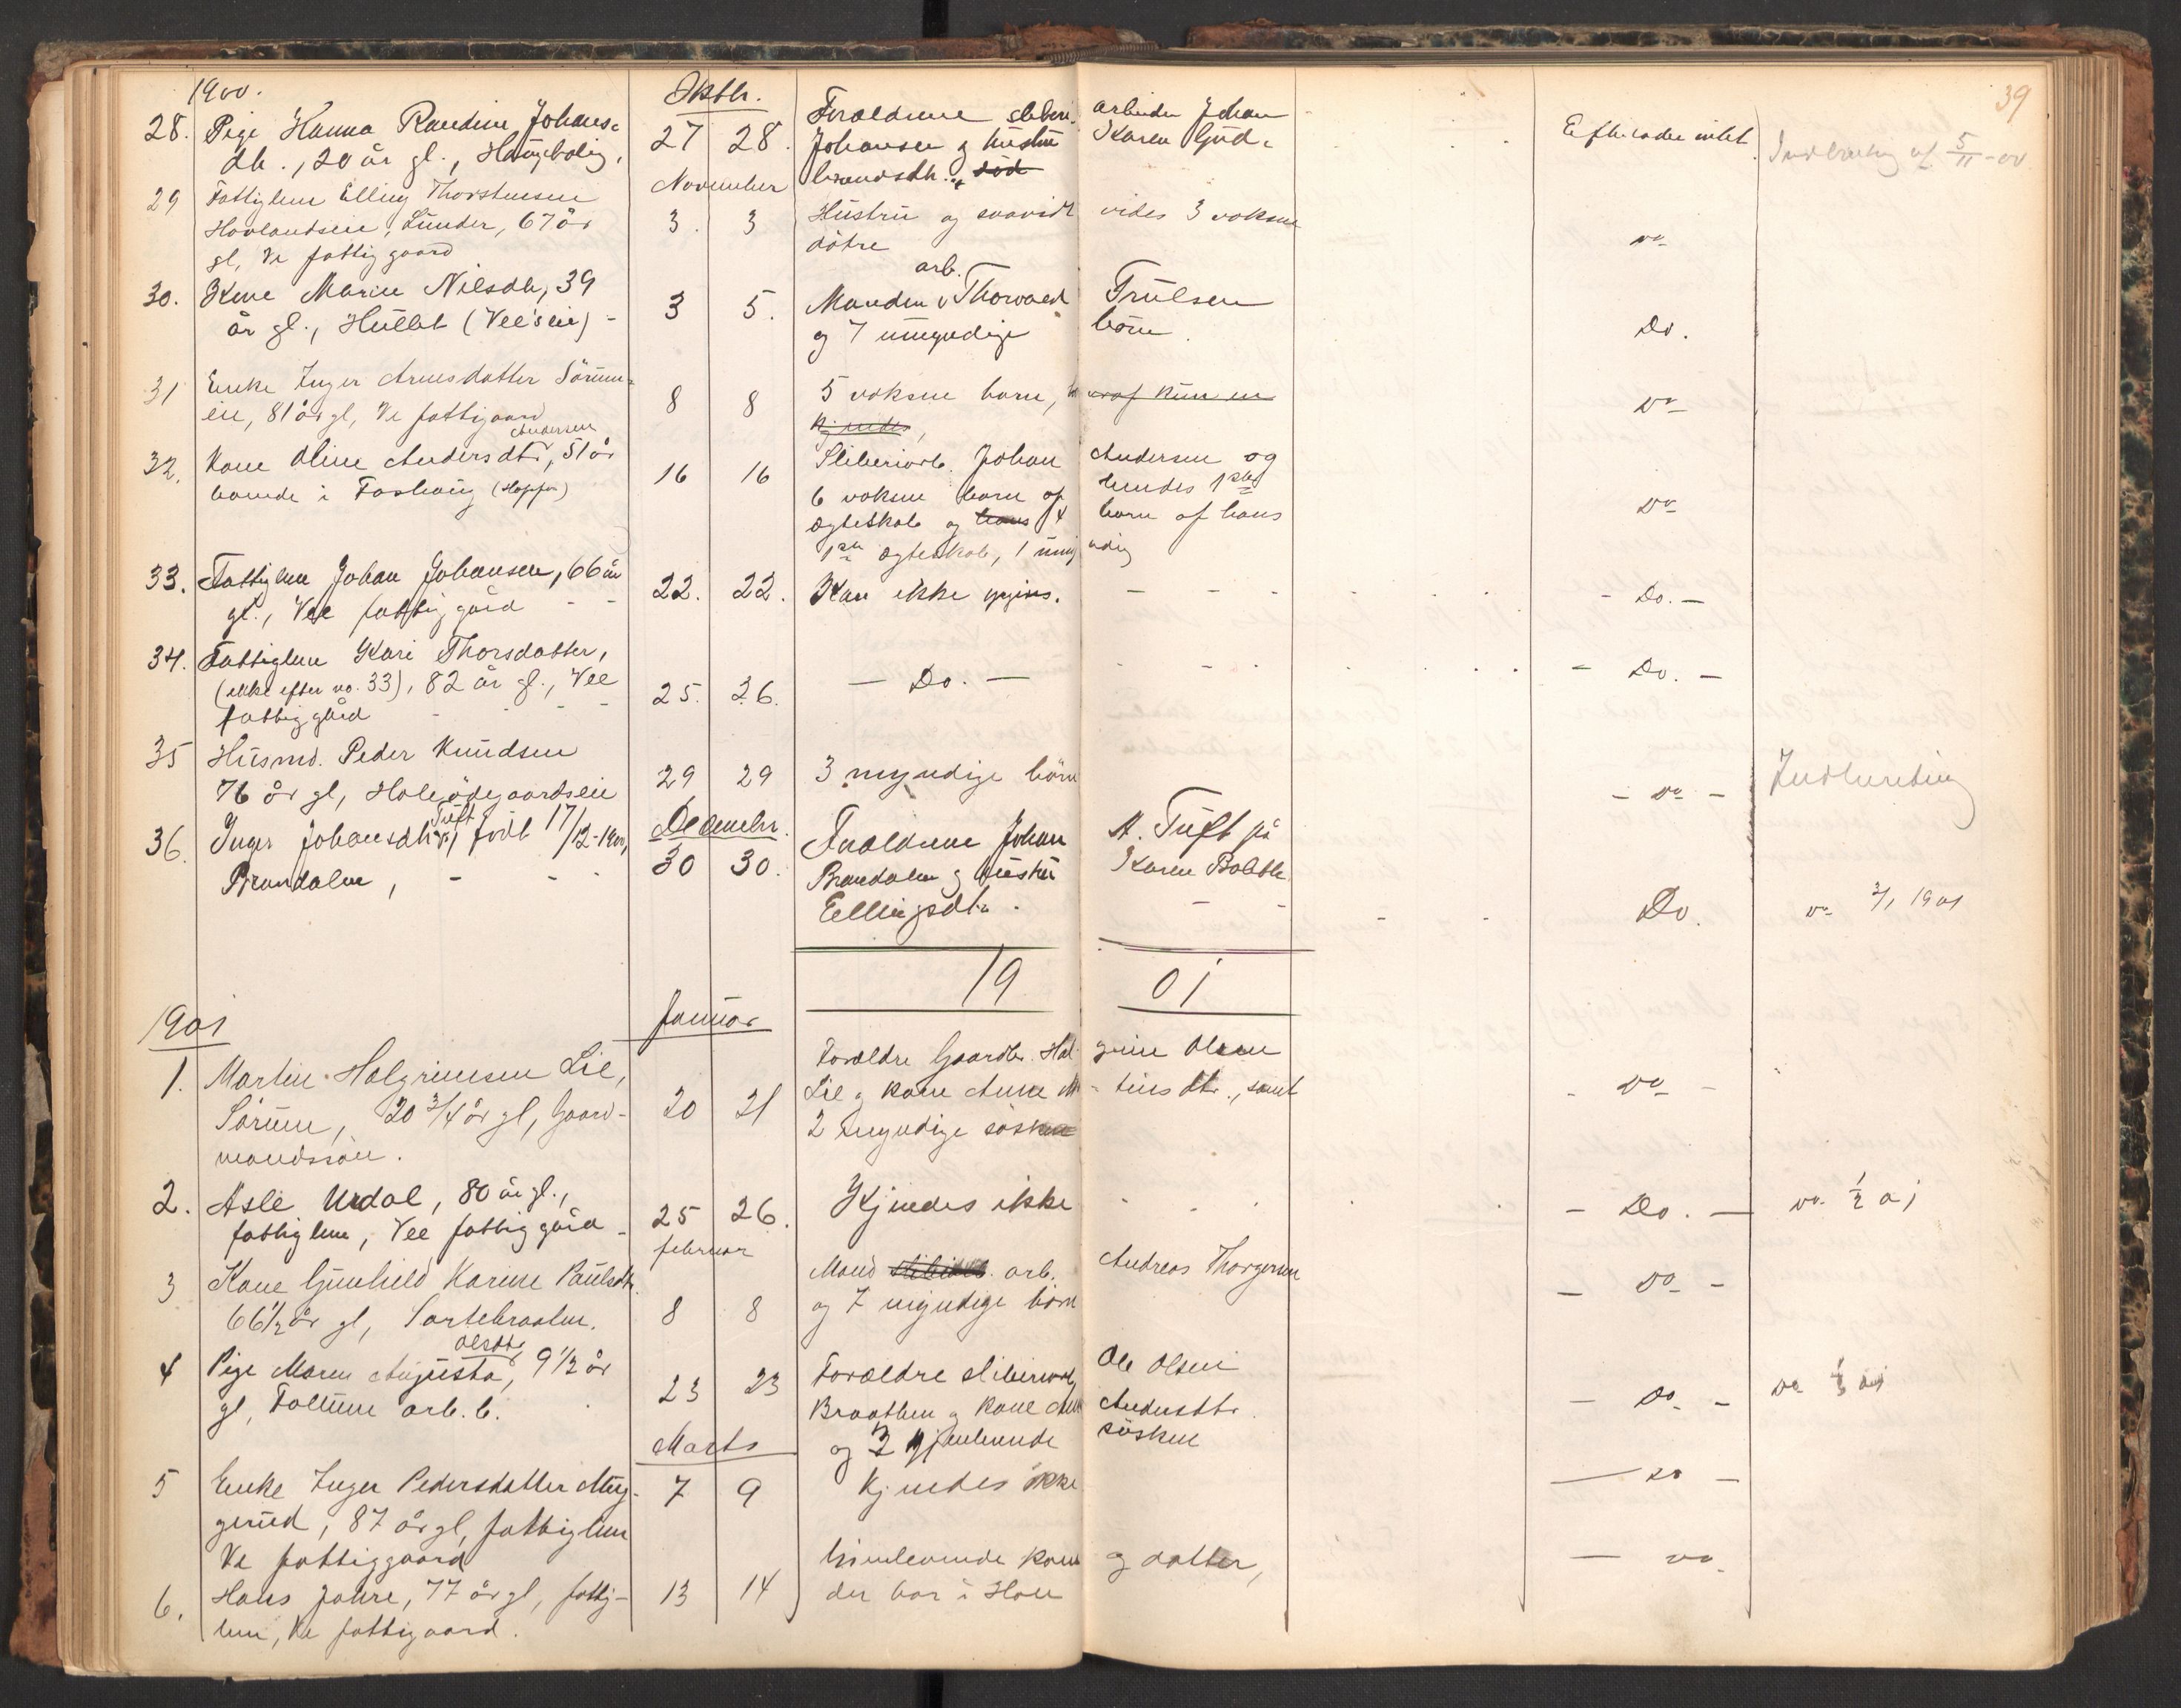 39
1900.
Oktbr.
28. Pige Hanna Randine Johans- 27 28. Forældrene sliberi- arbeider Johan Efterlader intet. Indberetng af 5/11-00
dtr., 20 år gl., Haugbolig. Johansen og hustru Karen Gud-
November brandsdtr. død
29 Fattiglem Elling Thorstensen 3. 3 Hustru og saavidt vides 3 voksne do
Hovlandseie, Lunder, 67 år døtre
gl, Ve fattiggaard
arb.
30. Kone Marie Nilsdtr, 39 3 5. Manden Thorvald Trulsen Do.
år gl., Hullet (Vee's eie) - og 7 umyndige børn.
31 Enke Inger Arnesdatter Sørum- 8 8 5 voksne børn, hvoraf kun en do
eie, 81 år gl, Ve fattiggaard kjendes,
Andersen
32. Kone Oline Andersdtr, 51 år 16 16 Sliberiarb. Johan Andersen og
boende i Foshaug (Hoffsf) 6 voksne børn af hendes 1ste do
ægteskab og hans 4 børn af hans
1ste ægteskab, 1 umyndig
33. Fattiglem Johan Johansen, 66 år 22. 22. Kan ikke opgives. - Do. -
gl., Vee fattiggård - -
34. Fattiglem Kari Thorsdatter,
(ikke efter no. 33), 82 år gl., Vee 25. 26. - Do. - - Do. -
fattiggård
35 Husmd. Peder Knudsen 29 29 3 myndige børn - do - Indberetning
76 år gl, Holeødegaardseie
Tuft Decembr.
36. Inger Johansdtr, født 17/12-1900, 30 30. Forældrene Johan A. Tuft på
Prøndalen, - - - Prøndalen og hustru Karen Bolette
Ellingsdtr. - - Do. do 2/1 1901
1901
1901
Januar
1. Martin Halgrimsen Lie, 20 21 Forældre Gaardbr. Halgrim Olsen
Sørum, 20 3/4 år gl, Gaard- Lie og kone Anne Martinsdtr., samt - do -
mandssøn. 2 myndige søskne
2. Asle Urdal, 80 år gl., 25 26. Kjendes ikke - Do. - do. 1/2 01
fattiglem, Vee fattiggård -
februar
3 Kone Gunhild Karine Paulsdtr. 8 8 Mand arb. Andreas Thorgersen - do -
66 1/2 år gl, Sortebraaten. og 7 myndige børn
Olsdtr
4 Pige Maren Augusta, 9 1/2 år 23 23 Forældre sliberiarb, Ole Olsen - do - do 1/3 01
gl, Follum arb. b. Braathen og kone Anne Andersdtr.
Marts og 2 gjenlevende søskne
5 Enke Inger Pedersdatter Mug- 7 9 Kjendes ikke - do -
gerud, 87 år gl, fattiglem
Ve fattiggaard
6. Hans Jahre, 77 år gl, fattig- 13 14 Gjenlevende kone og datter, - do
lem, Ve fattiggaard. der bor i Hole